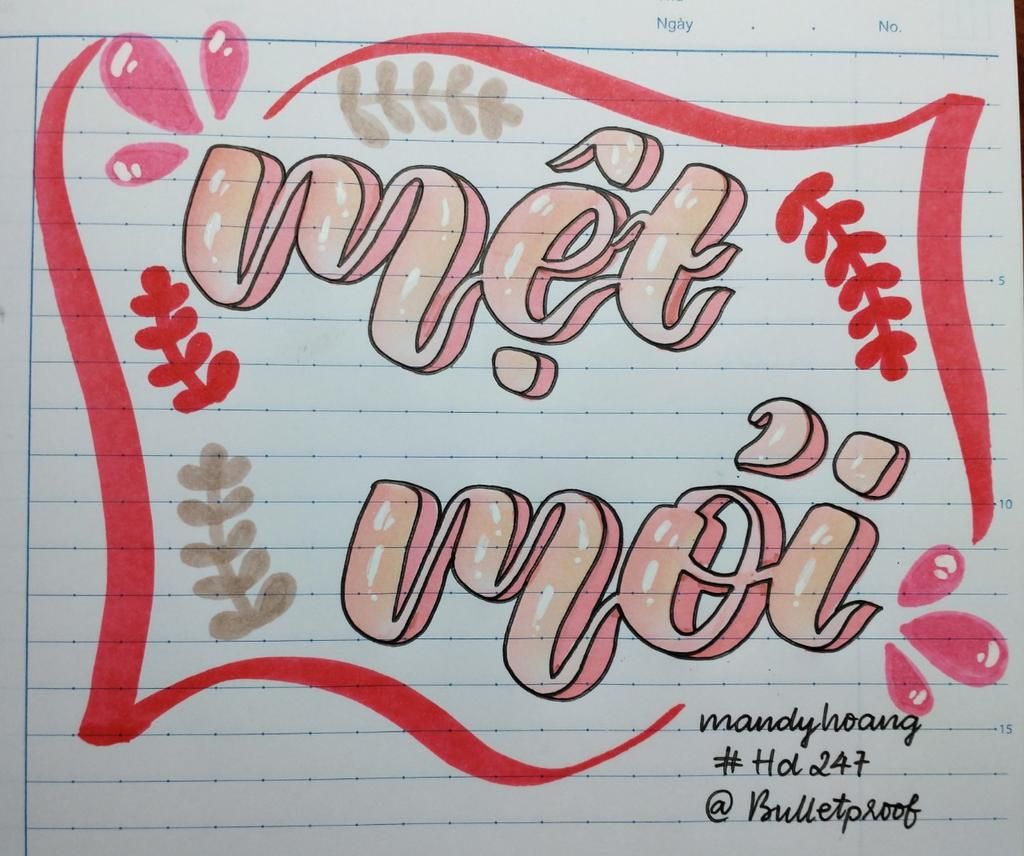 Ngày . . No.
mệt
5
mỏi
10
mandyhoang
15
# Hd 247
@ Bulletproof